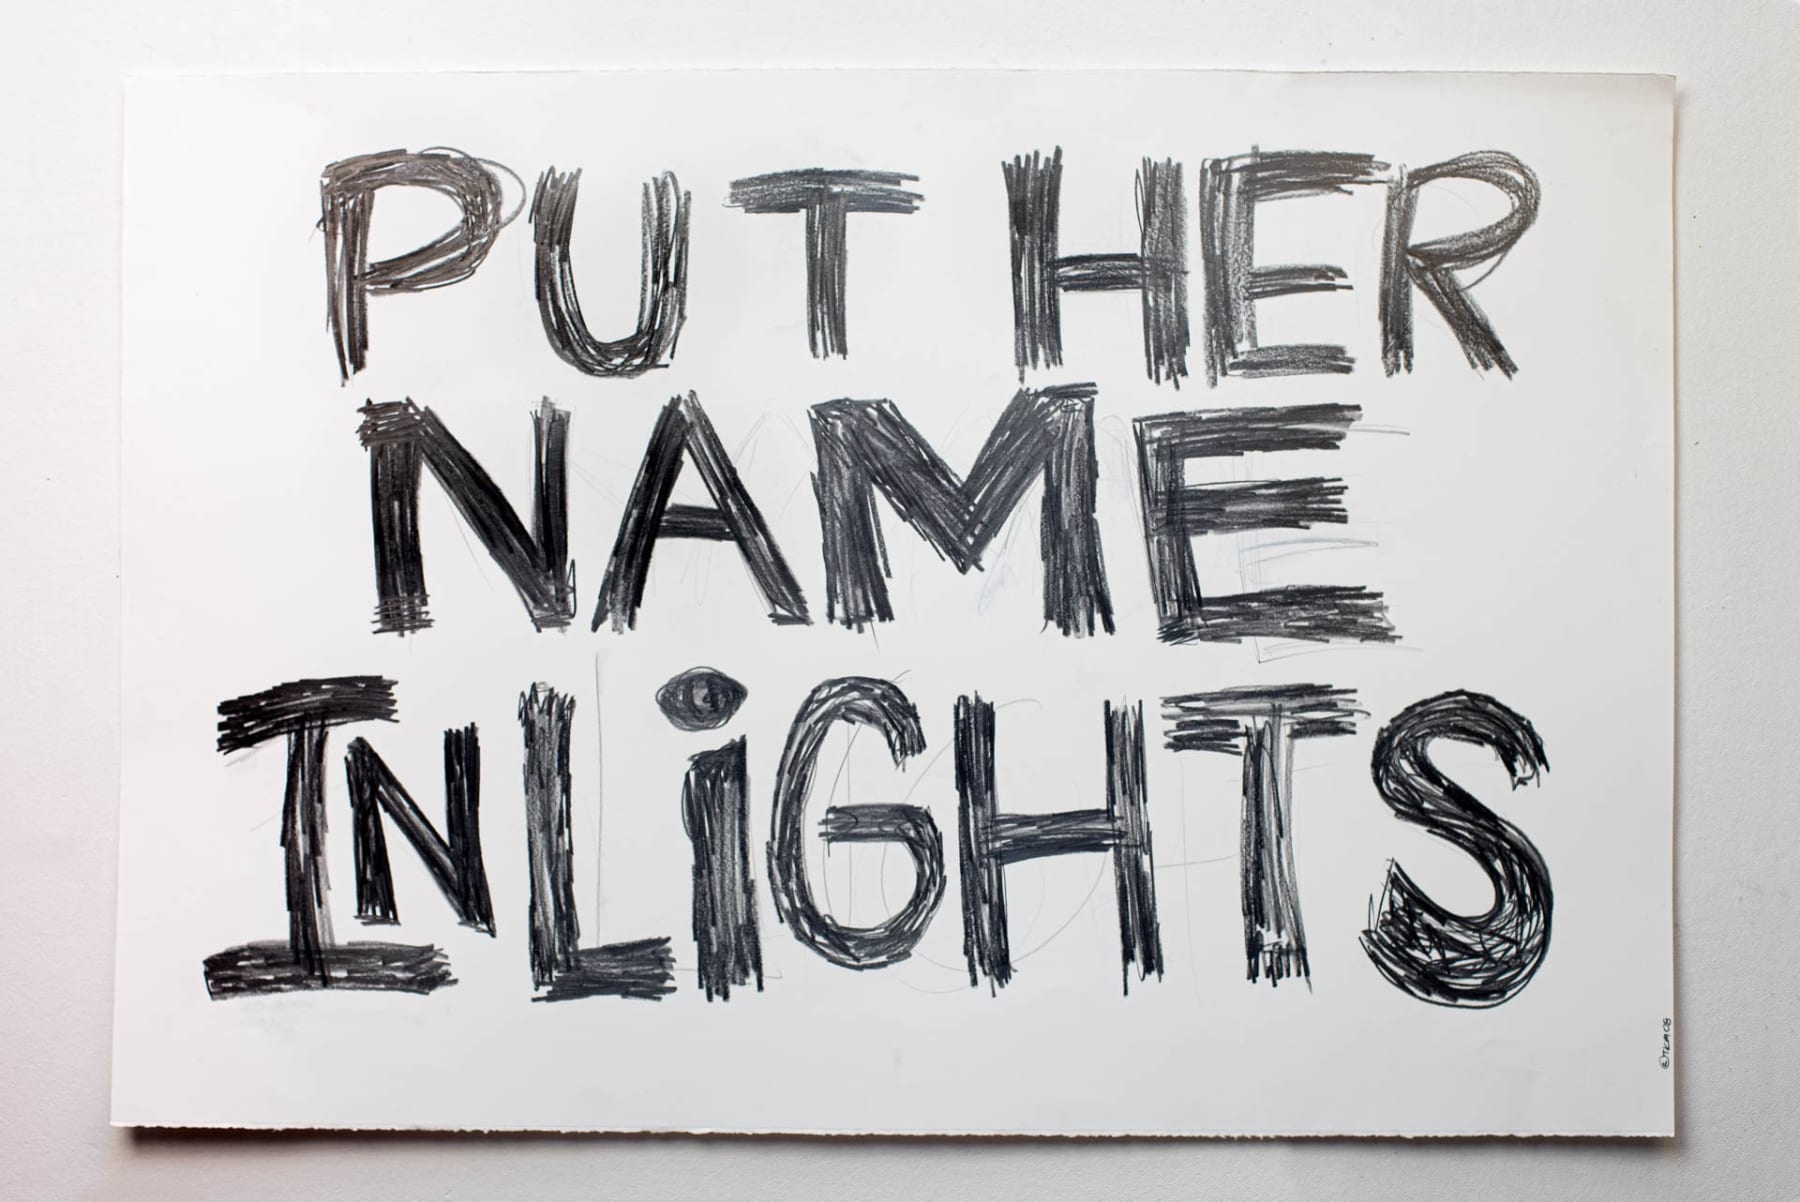 PUT HER
NAME
IN LiGHTS
©TKM 08